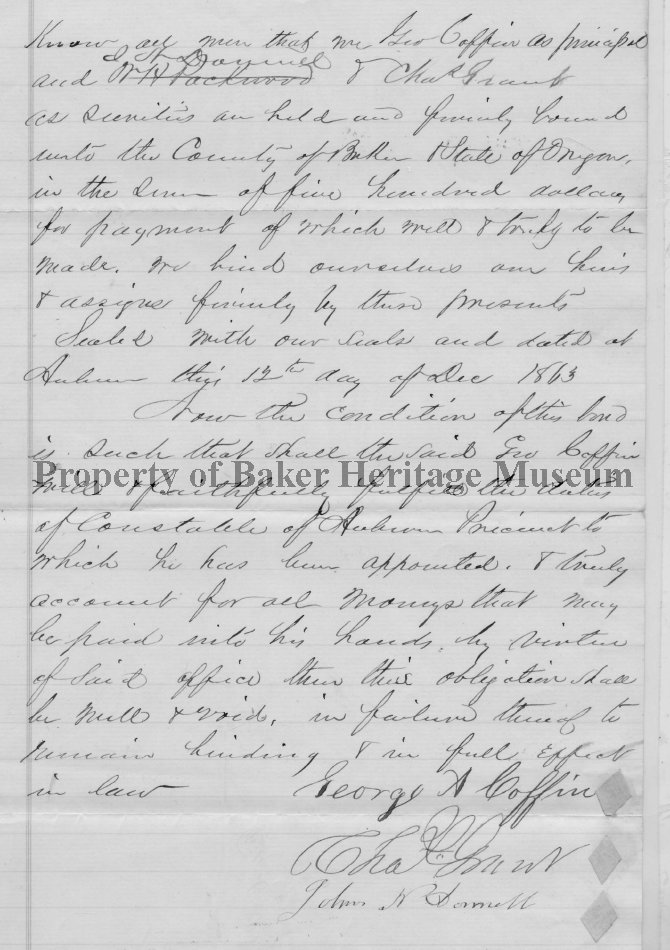 Know all men that we Geo Coffin as principal
J. N. Donnell
and W H Packwood & Chas Grant
as sureties are held and firmly bound
unto the County of Baker & State of Oregon,
in the sum of five hundred dollars
for payment of which well & truly to be
made. we bind ourselves our heirs
& assigns firmly by these presents
Sealed with our seals and dated at
Auburn this 12th day of Dec 1863
Now the condition of this bond
is such that shall the said Geo Coffin
Property of Baker Heritage Museum
will & faithfully fulfill the duties
of Constable of Auburn Precinct to
which he has been appointed. & truly
account for all moneys that may
be paid into his hands, by virtue
of said office then this obligation shall
be null & void, in failure thereof to
remain binding & in full effect
in law
George A Coffin
Chas Grant
John N Donnell